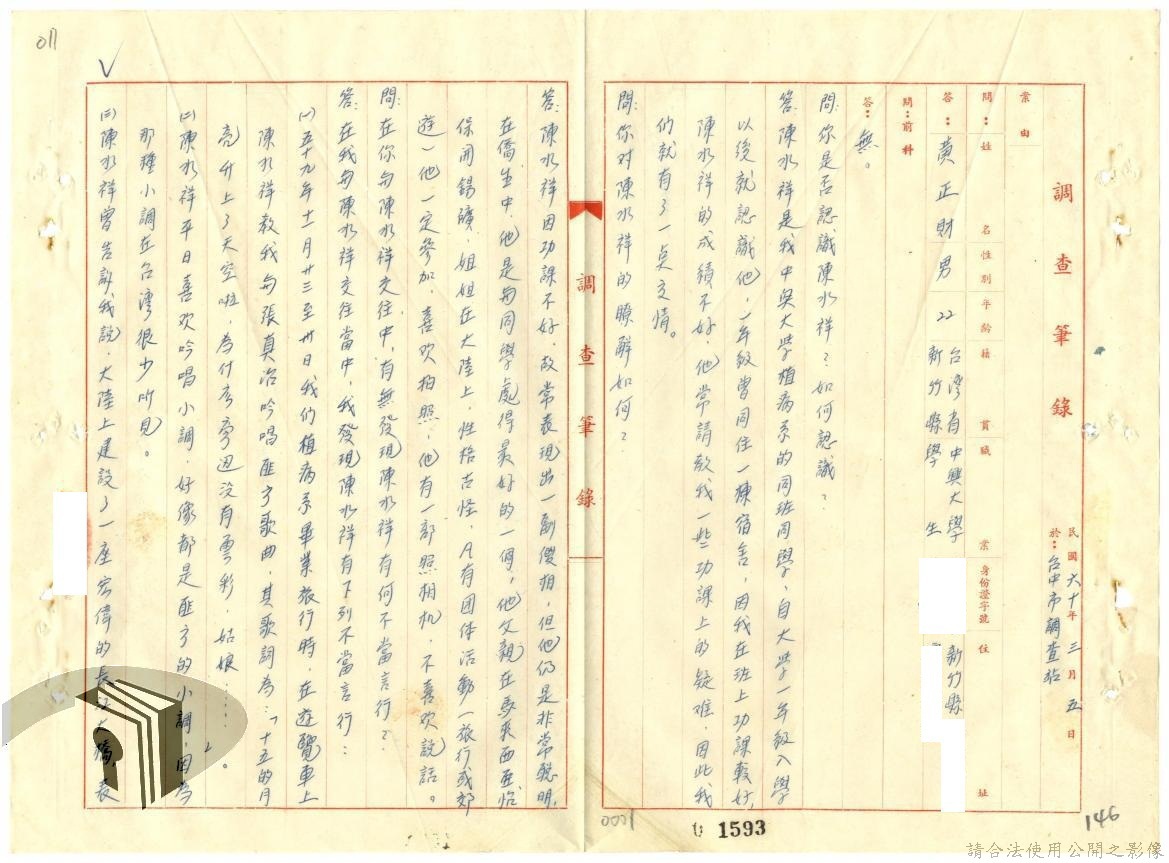 調查筆錄
民國六十年三月五日
於:台中市調查站
案由
問:姓名性別年齡籍貫職業身份證字號住址
答:黃正財男22台灣省新竹縣中興大學學生 新竹縣
問:前科
答:無。
問:你是否認識陳水祥?如何認識?
答:陳水祥是我中興大學植病系的同班同學,自大學一年級入學
以後就認識他,一年級曾同住一棟宿舍,因我在班上功課較好,
陳水祥的成績不好,他常請教我一些功課上的疑难,因此我
们就有了一点交情。
問:你对陳水祥的瞭解如何?
調查筆錄
答:陳水祥因功課不好,故常表現出一副傻相,但他仍是非常聪明,
在僑生中,他是与同學處得最好的一個,他父親在馬來西亚怡
保開錫礦,姐姐在大陸上,性格古怪,凡有团体活動(旅行或郊
遊)他一定參加,喜欢拍照,他有一部照相机,不喜欢說話。
問:在你与陳水祥交往中,有無發現陳水祥有何不當言行?
答:在我与陳水祥交往當中,我發現陳水祥有下列不當言行:
㈠五十九年十一月廿三至卅日我们植病系畢業旅行時,在遊覽車上
陳水祥教我与張真治吟唱匪方歌曲,其歌詞為:「十五的月
亮升上了天空啦,為什麼旁边没有雲彩,姑娘……」。
㈡陳水祥平日喜欢吟唱小調,好像都是匪方的小調,因為
那種小調在台灣很少听見。
㈢陳水祥曾告訴我說,大陸上建設了一座宏偉的長江大橋,表
011
0001
1593
146
請合法使用公開之影像